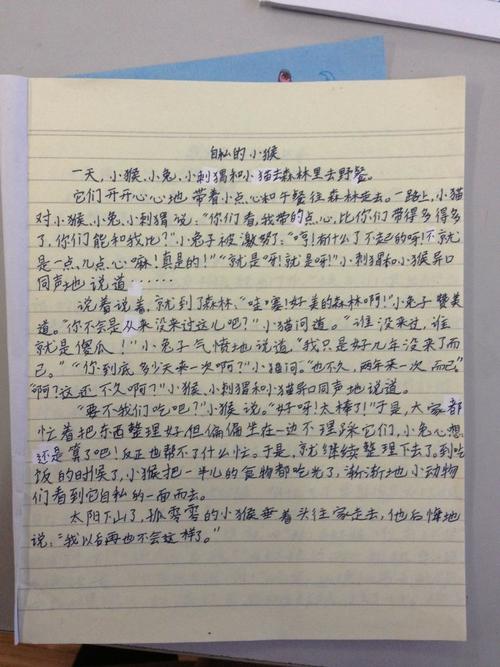 自私的小猴
一天,小猴、小兔、小刺猬和小猫去森林里去野餐。
它们开开心心地带着小点心和午餐往森林走去。一路上,小猫
对小猴、小兔、小刺猬说:“你们看,我带的点心,比你们带得多得多
了,你们能和我比?”小兔子被激怒了:“哼!有什么了不起的呀!不就
是一点、几点心嘛!真是的!”“就是呀!就是呀!”小刺猬和小猴异口
同声地说道……
说着说着,就到了森林,“哇塞!好美的森林啊!”小兔子赞美
道。“你不会是从来没来过这儿吧?”小猫问道。“谁没来过,谁
就是傻瓜!”小兔子气愤地说道,“我只是好几年没来了而
已。”“你到底多少天来一次啊?”小猫问。“也不久,两年来一次而已。”
“啊?这还不久啊?”小猴、小刺猬和小猫异口同声地说道。
“要不我们吃吧?”小猴说。“好呀!太棒了!”于是,大家都
忙着把东西整理好但偏偏坐在一边不理睬它们,小兔心想:
还是算了吧!反正也帮不了什么忙。于是,就继续整理下去了,到吃
饭的时候了,小猴把一半儿的食物都吃光了,渐渐地小动物
们看到它自私的一面而去。
太阳下山了,孤零零的小猴垂着头往家走去,他后悔地
说:“我以后再也不会这样了。”